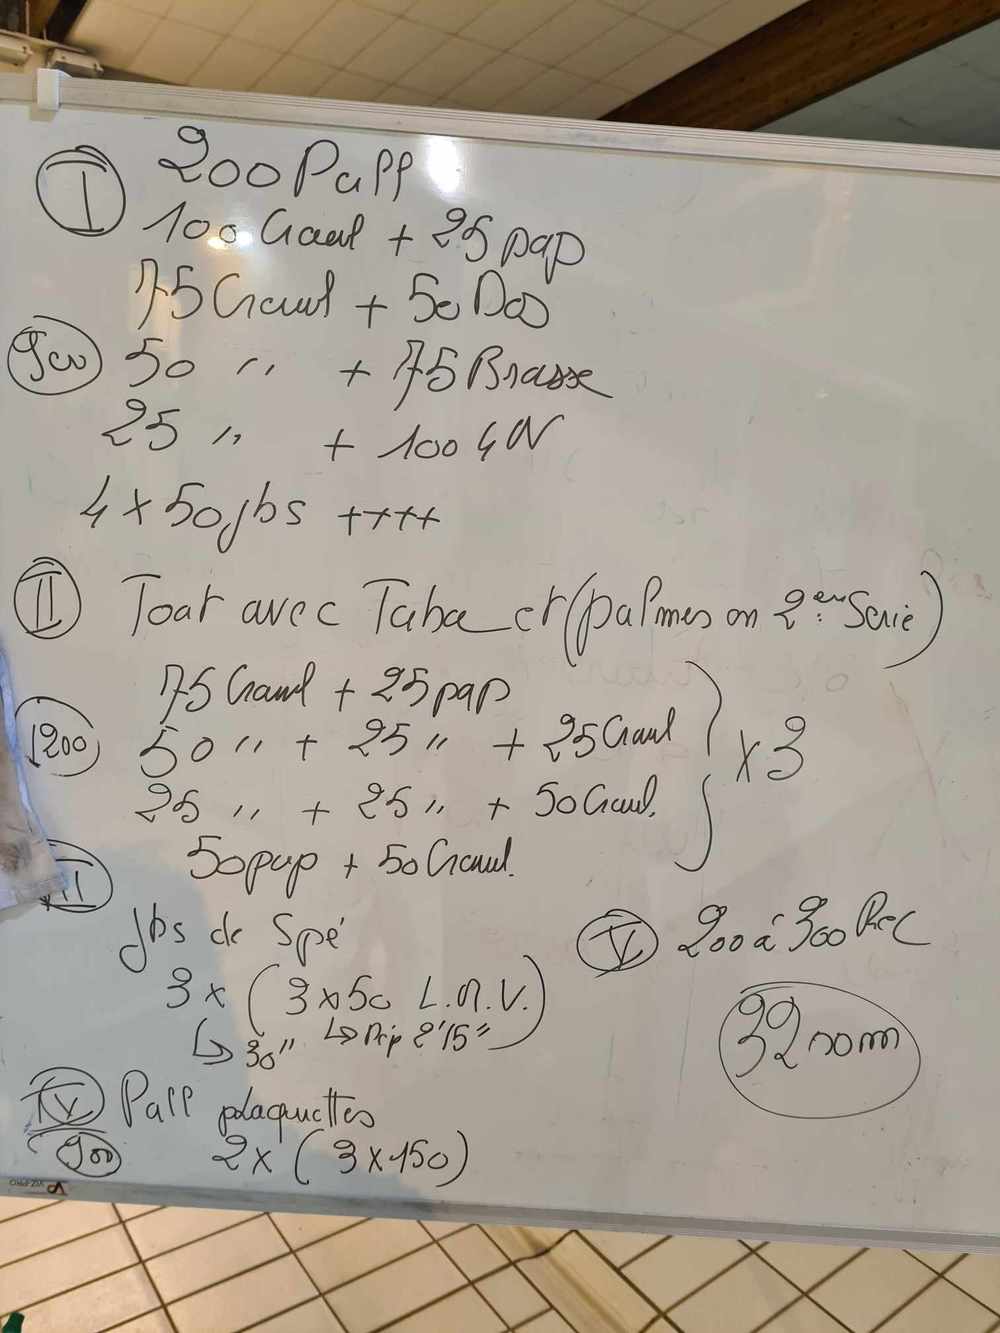 I 200 Paff
100 Crawl + 25 pap
75 Crawl + 50 Dos
900 50 " + 75 Brasse
25 " + 100 4N
4 x 50 jbs ++++
II Tout avec Tuba et (palmes en 2ème Serie)
75 Crawl + 25 pap
1200 50 " + 25 " + 25 Crawl
25 " + 25 " + 50 Crawl.
50 pap + 50 Crawl.
x 3
III
Jbs de Spé
3 x (3 x 50 L.M.V.)
↳ 30" ↳ Dép 2'15"
IV Paff plaquettes
900 2 x (3 x 150)
V 200 à 300 Rec
3200m